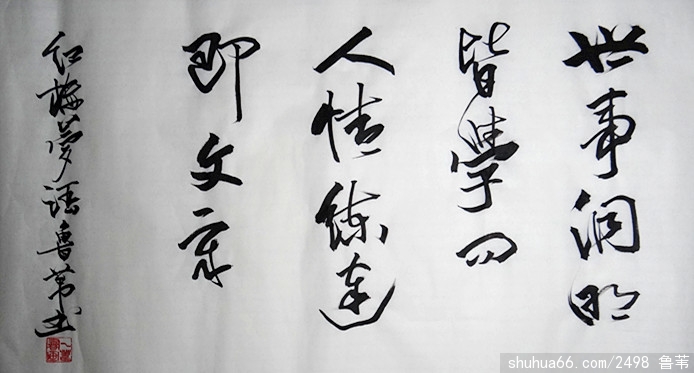 世事洞明
皆學问
人情练达
即文章
红楼夢语鲁苇书
shuhua66.com/2498 鲁苇